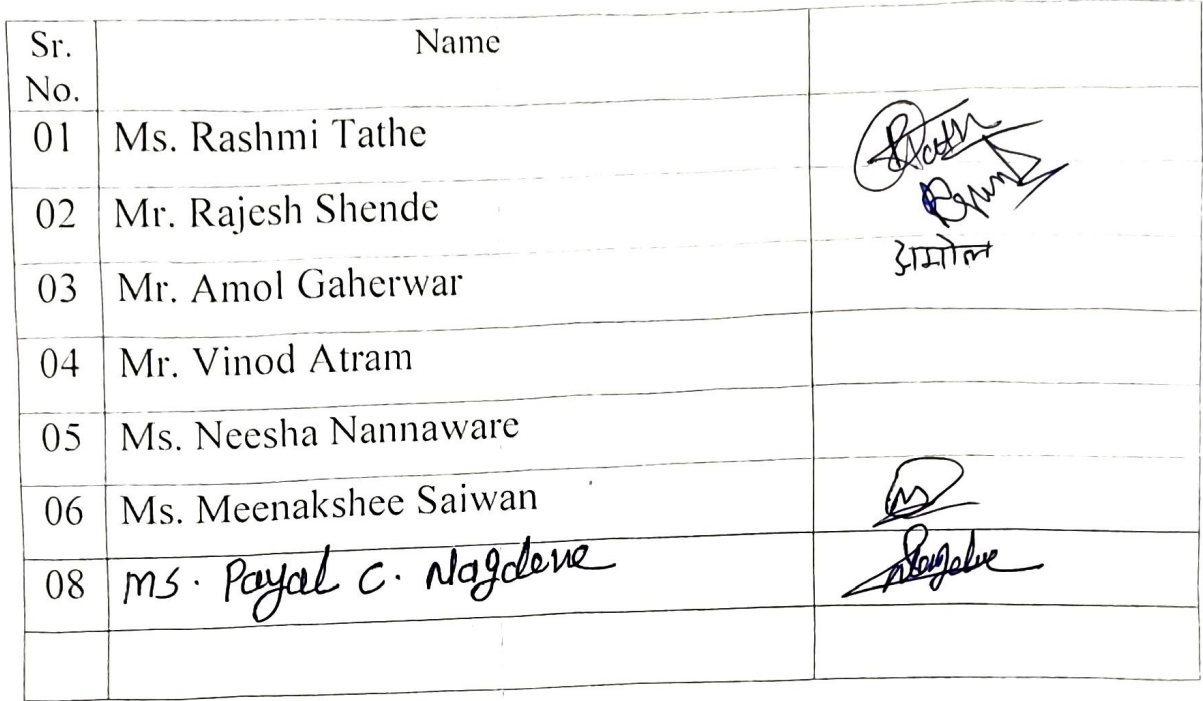 Sr. No. Name
01 Ms. Rashmi Tathe
02 Mr. Rajesh Shende
03 Mr. Amol Gaherwar अमोल
04 Mr. Vinod Atram
05 Ms. Neesha Nannaware
06 Ms. Meenakshee Saiwan
08 Ms. Payal C. Nagdeve